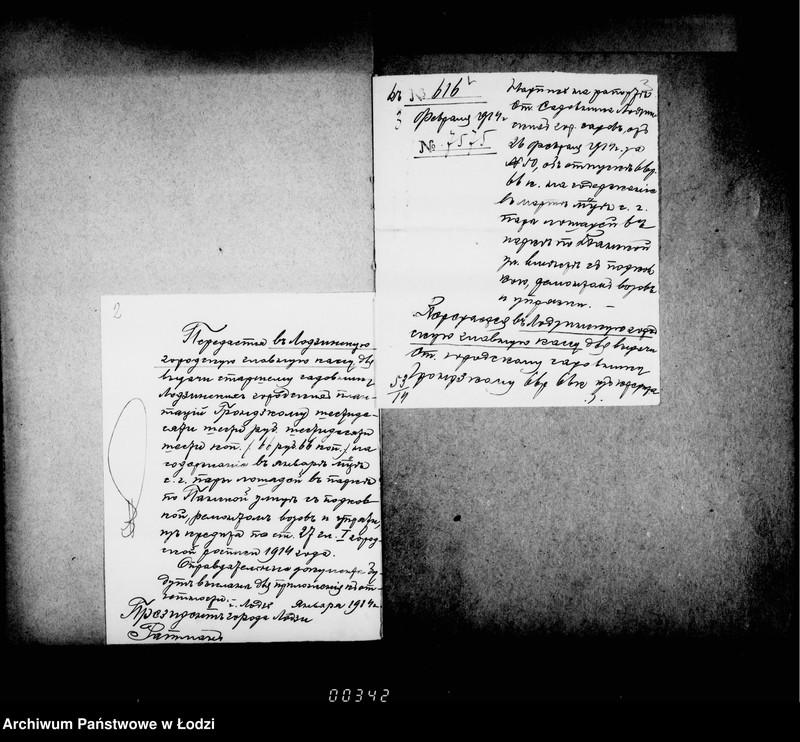 2
Передается въ Лодзинскую
городскую главную кассу для
выдачи старшему садовнику
Лодзинскихъ городскихъ план-
тацій Грондзкому шестьде-
сятъ шесть руб. шестьдесятъ
шесть коп. / 66 руб. 66 коп. / на
содержаніе въ январѣ мѣс.
с. г. пары лошадей въ паркѣ
по Паньской улицѣ съ подков-
кой, ремонтомъ возовъ и упряжи,
изъ кредита по ст. 27 гл. I город-
ской росписи 1914 года.
Оправдательные документы бу-
дутъ высланы для приложенія къ от-
четности. г. Лодзь Января 1914 г.
Президентъ города Лодзи
Ратманъ
2
къ № 616
3 Февраля 1914 г.
№ 7575
на рапортѣ
Ст. Садовника Лодзин-
скихъ гор. садовъ, отъ
26 февраля 1914 г. за
№ 50, объ отпускѣ 66 р.
66 к. на содержаніе
въ мартѣ мѣс. с. г.
пары лошадей въ
паркѣ по Паньской
ул. вмѣстѣ съ подков-
кою, ремонтомъ возовъ
и упряжи. —
Передается въ Лодзинскую город-
скую главную кассу для выдачи
Ст. городскому садовнику
Грондзкому 66 р. 66 к.
53/14
00342
Archiwum Państwowe w Łodzi